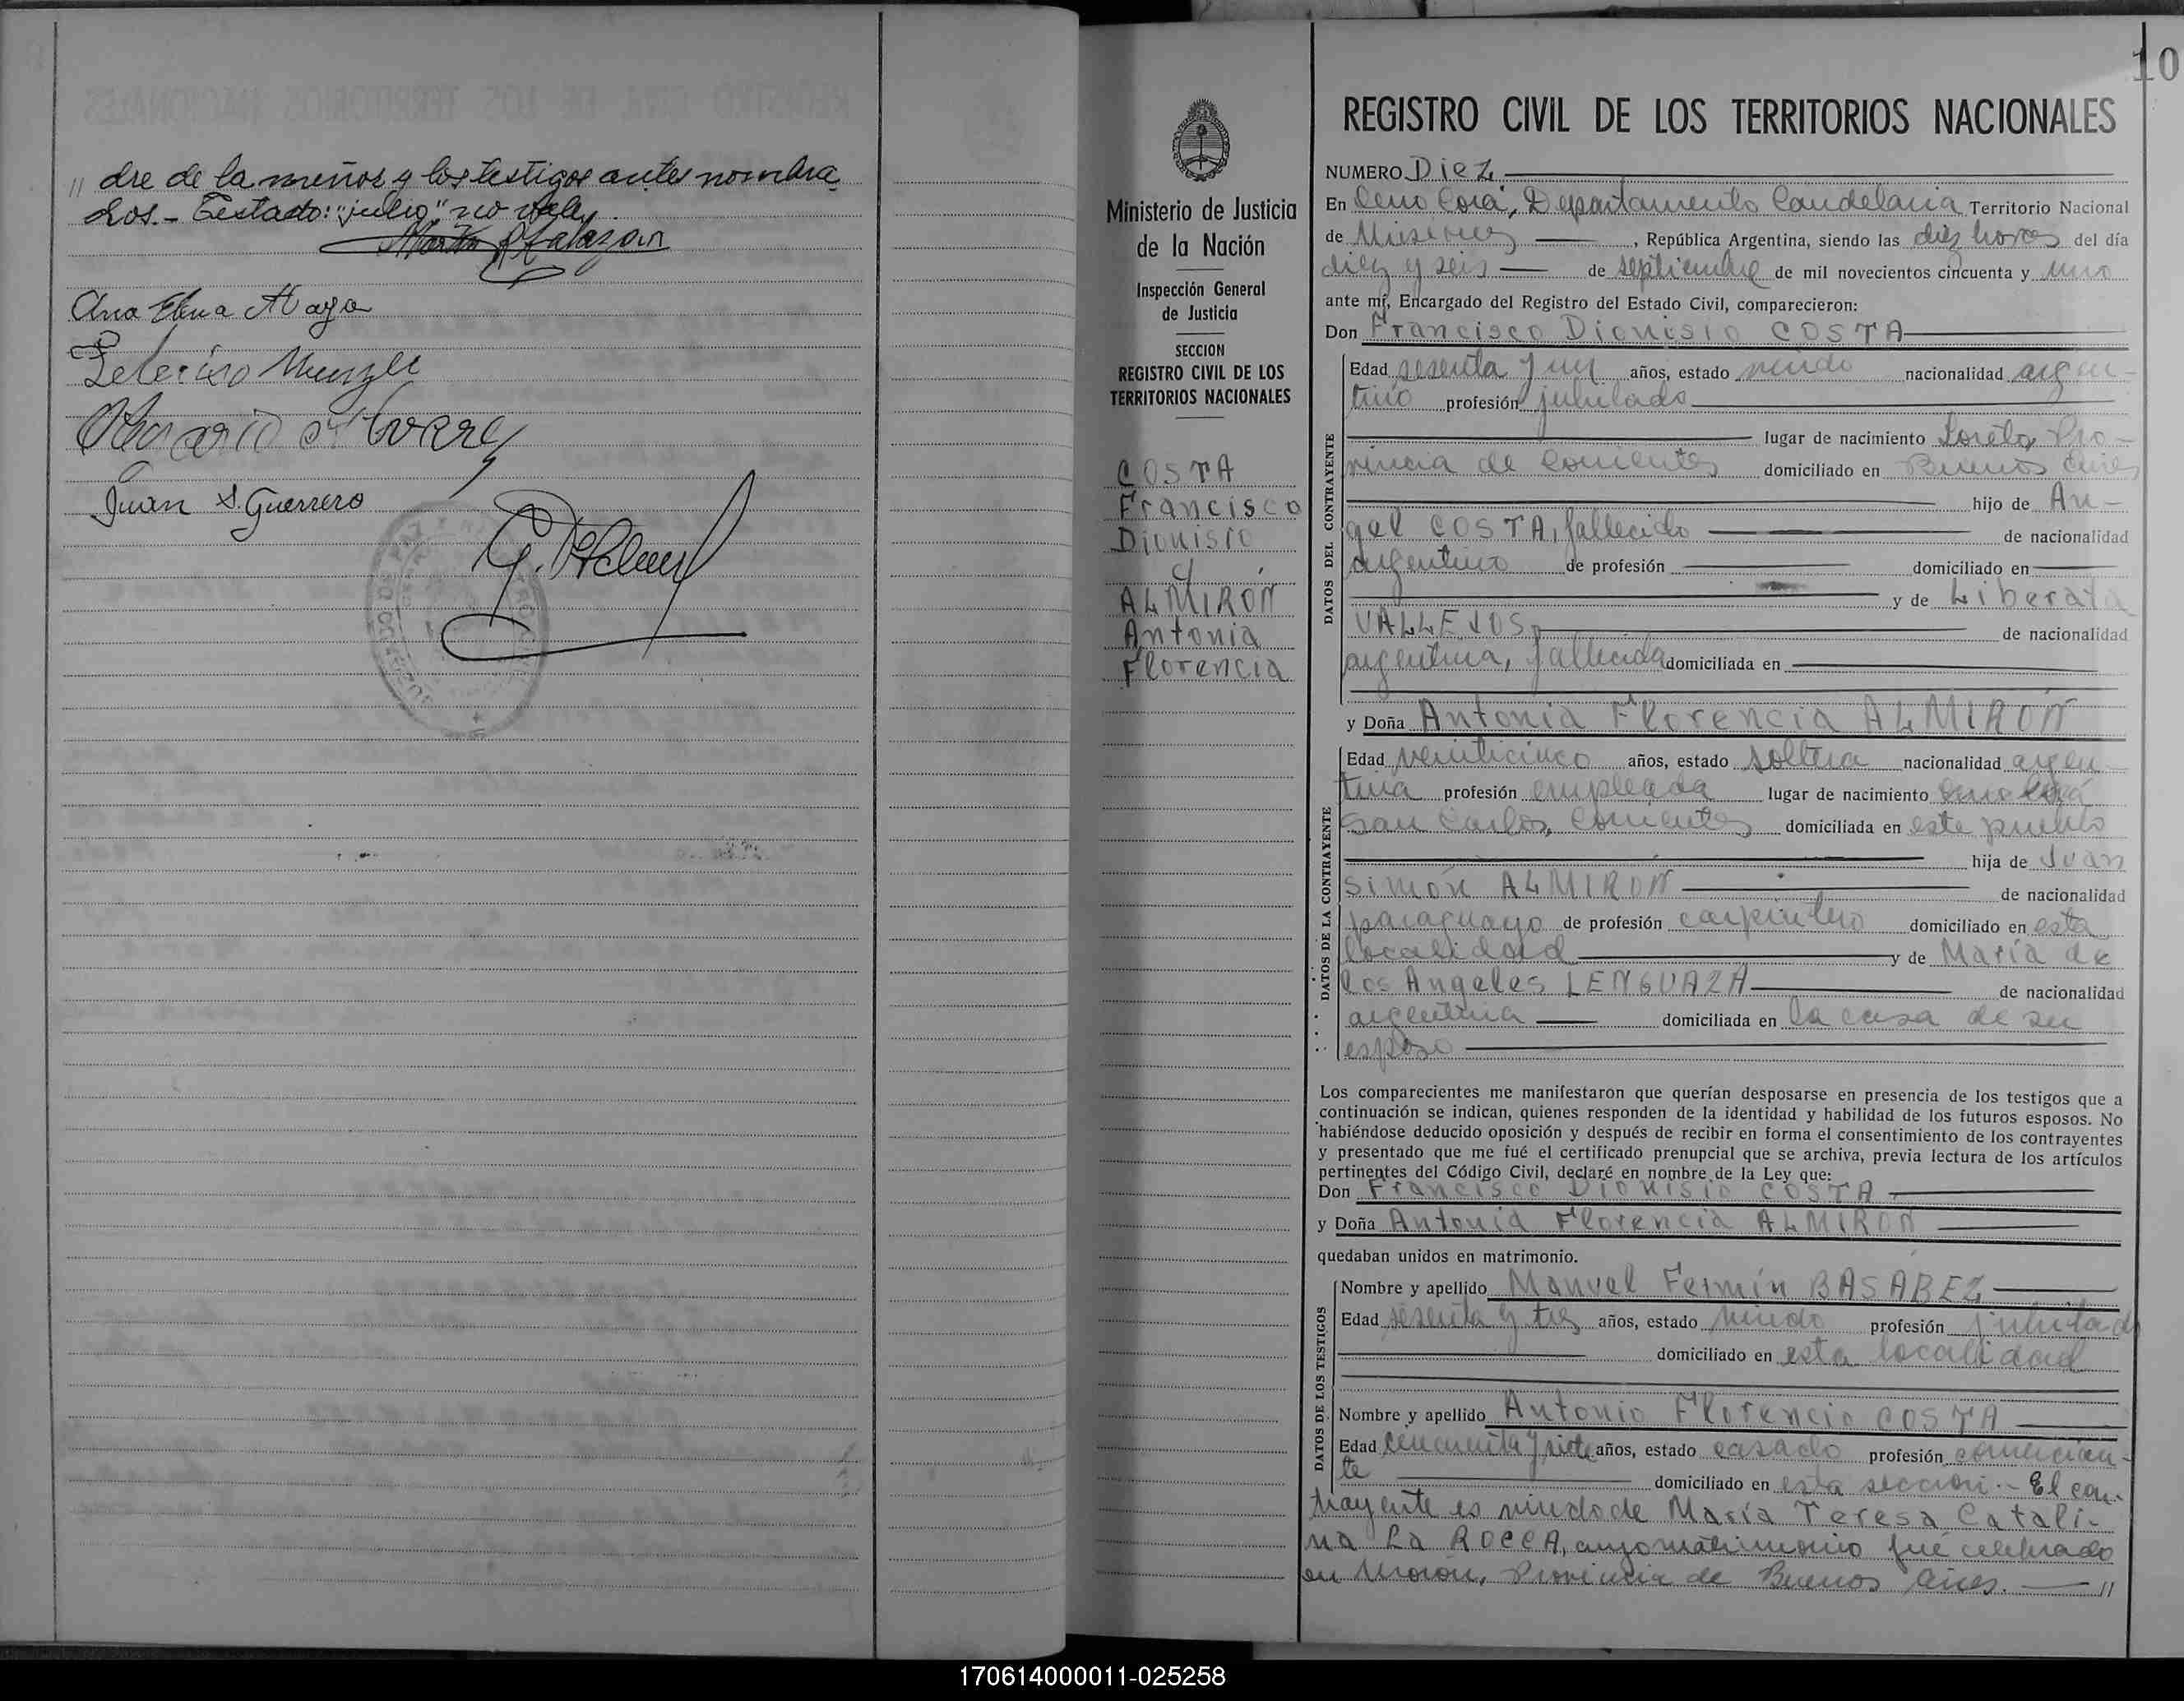 // dre de la menor y los testigos antes nombra
dos.- Testado: "julio" no vale
Ana Elena
Juan S. Guerrero
10
Ministerio de Justicia
de la Nación
Inspección General
de Justicia
SECCION
REGISTRO CIVIL DE LOS
TERRITORIOS NACIONALES
COSTA
Francisco
Dionisio
c/
ALMIRÓN
Antonia
Florencia
REGISTRO CIVIL DE LOS TERRITORIOS NACIONALES
NUMERO Diez
En Cerro Corá, Departamento Candelaria Territorio Nacional
de Misiones, República Argentina, siendo las diez horas del día
diez y seis de septiembre de mil novecientos cincuenta y uno
ante mí, Encargado del Registro del Estado Civil, comparecieron:
Don Francisco Dionisio COSTA
DATOS DEL CONTRAYENTE
Edad sesenta y un años, estado viudo nacionalidad argen-
tino profesión jubilado
lugar de nacimiento Loreto, Pro-
vincia de Corrientes domiciliado en Buenos Aires
hijo de An-
gel COSTA, fallecido de nacionalidad
argentino de profesión domiciliado en
y de Liberata
VALLEJOS, de nacionalidad
argentina, fallecida domiciliada en
y Doña Antonia Florencia ALMIRÓN
DATOS DE LA CONTRAYENTE
Edad veinticinco años, estado soltera nacionalidad argen-
tina profesión empleada lugar de nacimiento
San Carlos, Corrientes domiciliada en este pueblo
hija de Juan
Simón ALMIRÓN de nacionalidad
paraguayo de profesión carpintero domiciliado en esta
localidad y de María de
los Angeles LENGUAZA de nacionalidad
argentina domiciliada en la casa de su
esposo
Los comparecientes me manifestaron que querían desposarse en presencia de los testigos que a
continuación se indican, quienes responden de la identidad y habilidad de los futuros esposos. No
habiéndose deducido oposición y después de recibir en forma el consentimiento de los contrayentes
y presentado que me fué el certificado prenupcial que se archiva, previa lectura de los artículos
pertinentes del Código Civil, declaré en nombre de la Ley que:
Don Francisco Dionisio COSTA
y Doña Antonia Florencia ALMIRÓN
quedaban unidos en matrimonio.
DATOS DE LOS TESTIGOS
Nombre y apellido Manuel Fermín BASABEZ
Edad sesenta y tres años, estado viudo profesión jubilado
domiciliado en esta localidad
Nombre y apellido Antonio Florencio COSTA
Edad cincuenta y siete años, estado casado profesión comercian-
te domiciliado en esta sección.- El con-
trayente es viudo de María Teresa Catali-
na La ROCCA, cuyo matrimonio fué celebrado
en Morón, Provincia de Buenos Aires. //
170614000011-025258